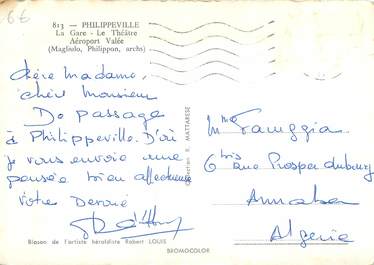 6€
813 — PHILIPPEVILLE
La Gare - Le Théâtre
Aéroport Valée
(Magliulo, Philippon, archs)
Chère Madame,
Chère Monsieur
De passage
à Philippeville. D'où
je vous envoie une
pensée bien affectueuse
Votre Dévoué
Collection R. MATTARESE
Mme
6 bis rue Prosper dubourg
Annaba
Algérie
Blason de l'artiste héraldiste Robert LOUIS
BROMOCOLOR